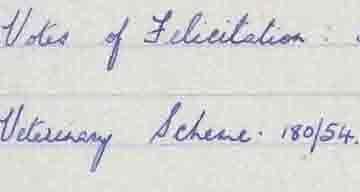 Votes of Felicitation :
Veterinary Scheme. 180/54.